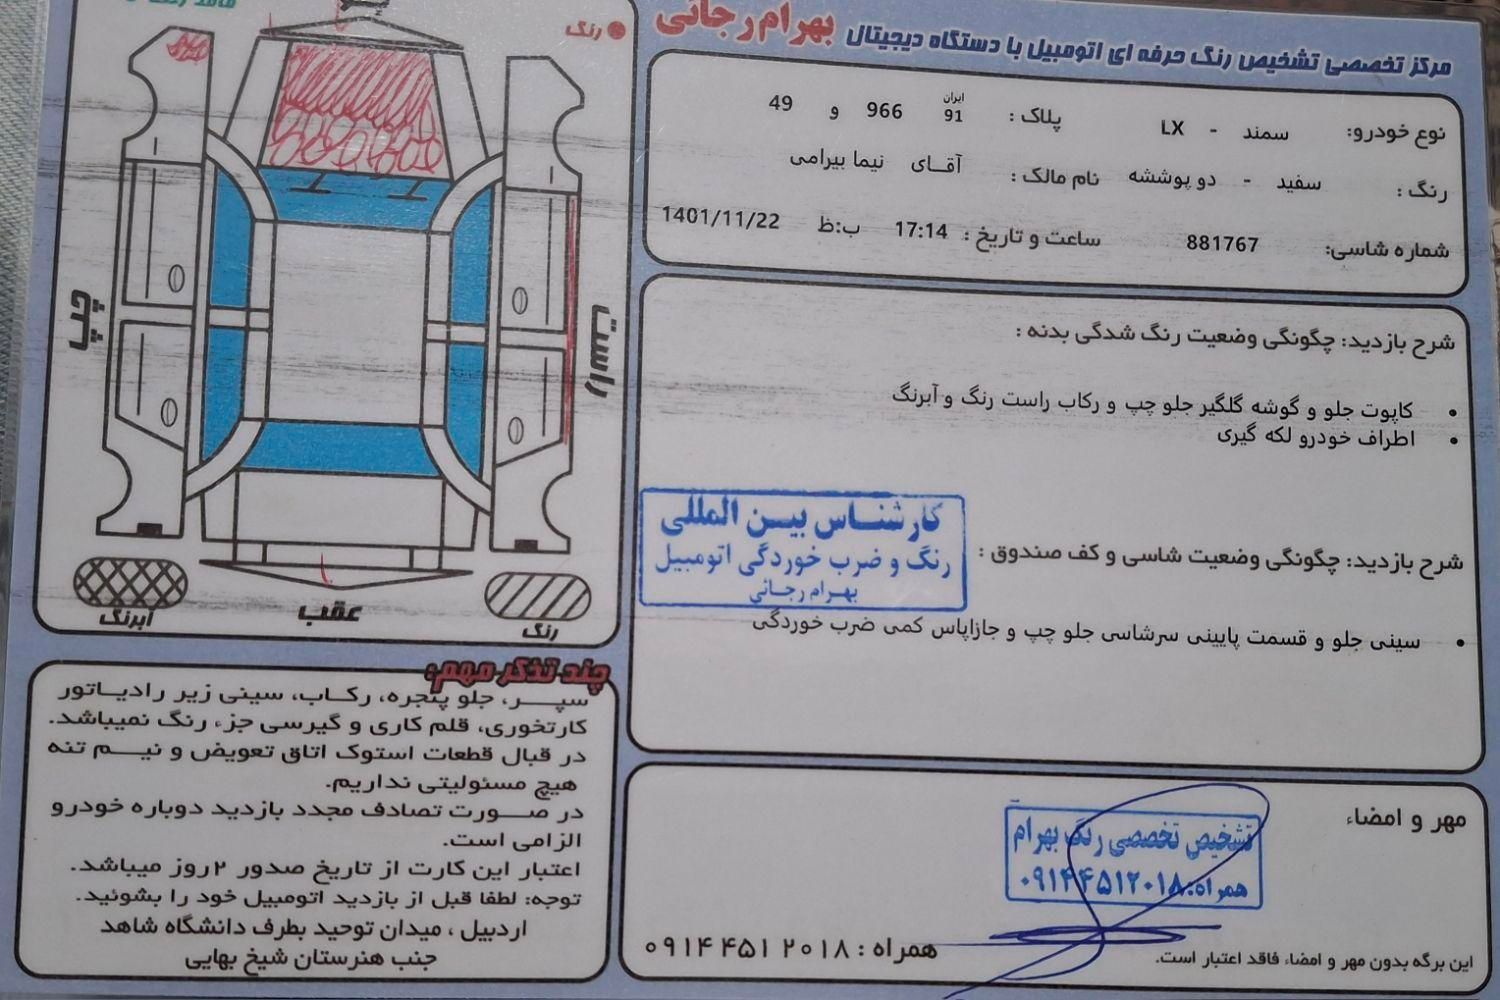 مرکز تخصصی تشخیص رنگ حرفه ای اتومبیل با دستگاه دیجیتال بهرام رجائی
نوع خودرو: سمند - LX پلاک : ایران 91 966 و 49
رنگ : سفید - دو پوششه نام مالک : آقای نیما بیرامی
شماره شاسی: 881767 ساعت و تاریخ : 17:14 ب:ظ 1401/11/22
شرح بازدید: چگونگی وضعیت رنگ شدگی بدنه :
• کاپوت جلو و گوشه گلگیر جلو چپ و رکاب راست رنگ و آبرنگ
• اطراف خودرو لکه گیری
شرح بازدید: چگونگی وضعیت شاسی و کف صندوق :
کارشناس بین المللی
رنگ و ضرب خوردگی اتومبیل
بهرام رجائی
• سینی جلو و قسمت پایینی سرشاسی جلو چپ و جازاپاس کمی ضرب خوردگی
مهر و امضاء
تشخیص تخصصی رنگ بهرام
همراه:۰۹۱۴۴۵۱۲۰۱۸
همراه : ۰۹۱۴ ۴۵۱ ۲۰۱۸
این برگه بدون مهر و امضاء فاقد اعتبار است.
رنگ
راست
چپ
عقب
رنگ
آبرنگ
چند تذکر مهم:
سپر، جلو پنجره، رکاب، سینی زیر رادیاتور
کارتخوری، قلم کاری و گیرسی جزء رنگ نمیباشد.
در قبال قطعات استوک اتاق تعویض و نیم تنه
هیچ مسئولیتی نداریم.
در صورت تصادف مجدد بازدید دوباره خودرو
الزامی است.
اعتبار این کارت از تاریخ صدور ۲روز میباشد.
توجه: لطفا قبل از بازدید اتومبیل خود را بشوئید.
اردبیل ، میدان توحید بطرف دانشگاه شاهد
جنب هنرستان شیخ بهایی